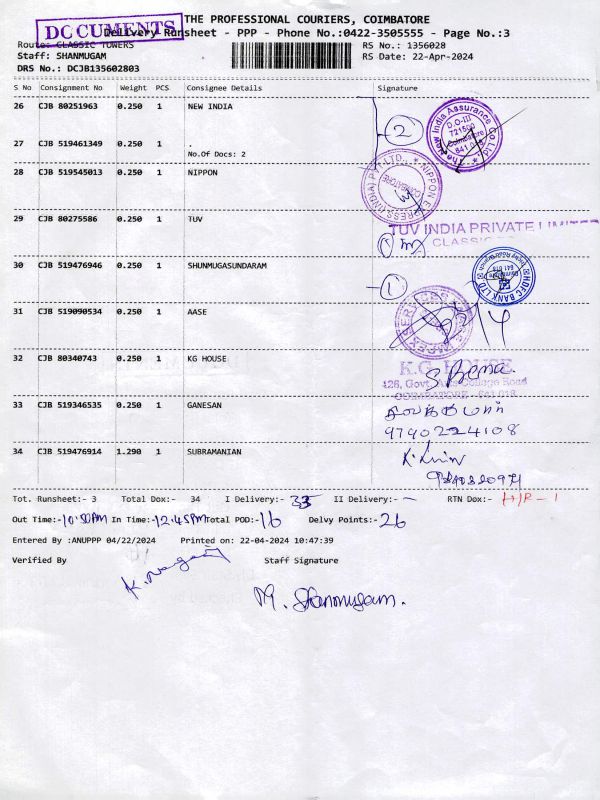 DOCUMENTS
THE PROFESSIONAL COURIERS, COIMBATORE
Delivery Runsheet - PPP - Phone No.:0422-3505555 - Page No.:3
Route: CLASSIC TOWERS
RS No.: 1356028
Staff: SHANMUGAM
RS Date: 22-Apr-2024
DRS No.: DCJB135602803
S No Consignment No Weight PCS Consignee Details Signature
26 CJB 80251963 0.250 1 NEW INDIA
2
The New India Assurance Co.Ltd.
D.O-III
721500
Coimbatore
641 018
27 CJB 519461349 0.250 1 .
No.Of Docs: 2
28 CJB 519545013 0.250 1 NIPPON
NIPPON EXPRESS (INDIA) PVT. LTD.,
COIMBATORE
29 CJB 80275586 0.250 1 TUV
TUV INDIA PRIVATE
CLASSIC
30 CJB 519476946 0.250 1 SHUNMUGASUNDARAM
1
HDFC BANK LTD
31 CJB 519090534 0.250 1 AASE
32 CJB 80340743 0.250 1 KG HOUSE
K.G. HOUSE
S. Bema
126, Govt. Arts College Road
COIMBATORE - 641 018
33 CJB 519346535 0.250 1 GANESAN
9790224108
34 CJB 519476914 1.290 1 SUBRAMANIAN
Tot. Runsheet:- 3 Total Dox:- 34 I Delivery:- 33 II Delivery:- - RTN Dox:- H/R - 1
Out Time:- 10:50AM In Time:- 12.45PM Total POD:- 16 Delvy Points:- 26
Entered By :ANUPPP 04/22/2024 Printed on: 22-04-2024 10:47:39
Verified By Staff Signature
M. Shanmugam.